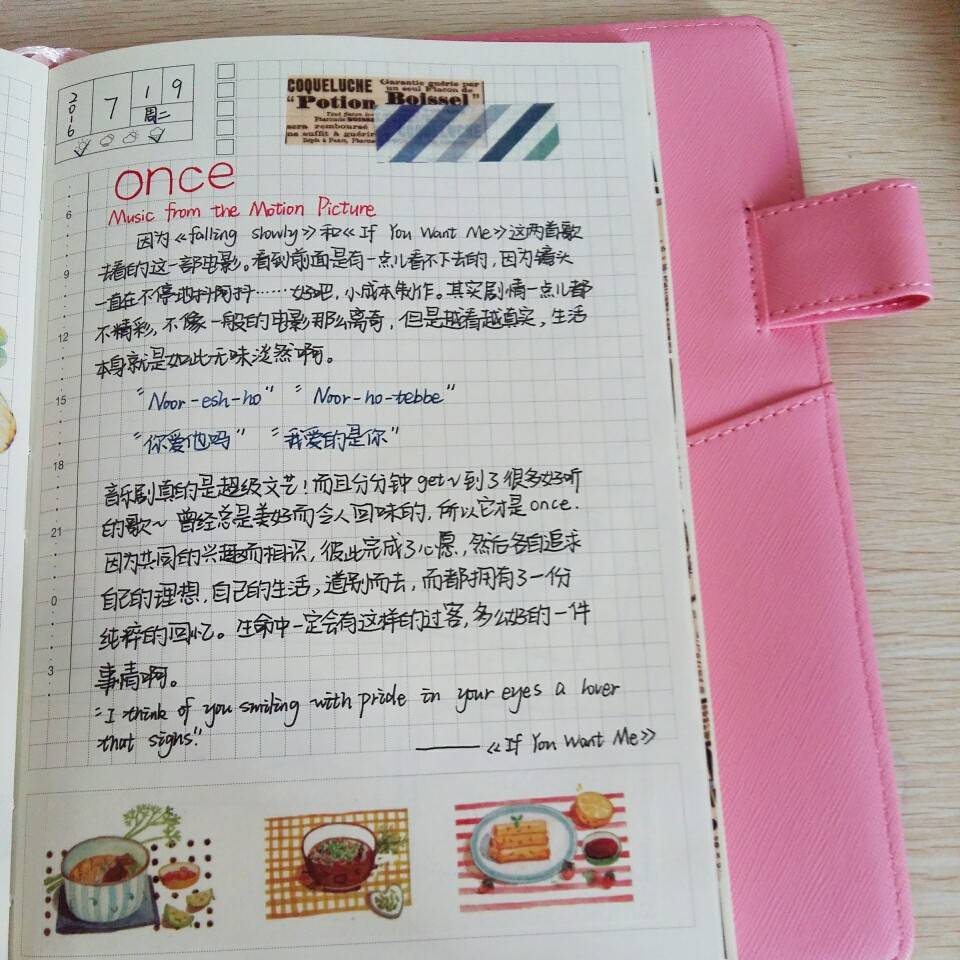 2016
7
19
周二
COQUELUCHE
"Potion Boissel"
Garantie guérie par
un seul Flacon de
sera remboursé
once
Music from the Motion Picture
因为《falling slowly》和《If You Want Me》这两首歌
去看的这一部电影。看到前面是有一点儿看不下去的，因为镜头
一直在不停地抖阿抖……好吧，小成本制作。其实剧情一点儿都
不精彩，不像一般的电影那么离奇，但是越看越真实，生活
本身就是如此无味淡然啊。
"Noor-esh-ho" "Noor-ho-tebbe"
"你爱他吗" "我爱的是你"
音乐剧真的是超级文艺！而且分分钟get~到了很多好听
的歌~ 曾经总是美好而令人回味的，所以它才是once.
因为共同的兴趣而相识，彼此完成了心愿，然后各自追求
自己的理想，自己的生活，道别而去，而都拥有了一份
纯粹的回忆。生命中一定会有这样的过客，多么好的一件
事情啊。
"I think of you smiling with pride in your eyes a lover
that sighs."
——《If You Want Me》
6
9
12
15
18
21
0
3